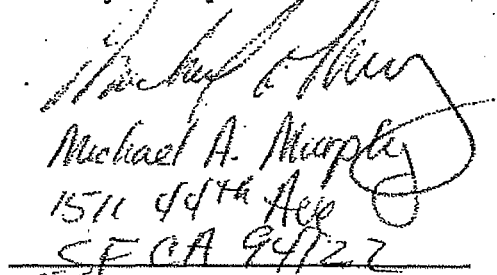 Michael A. Murphy
1511 44th Ave
SF CA 94122